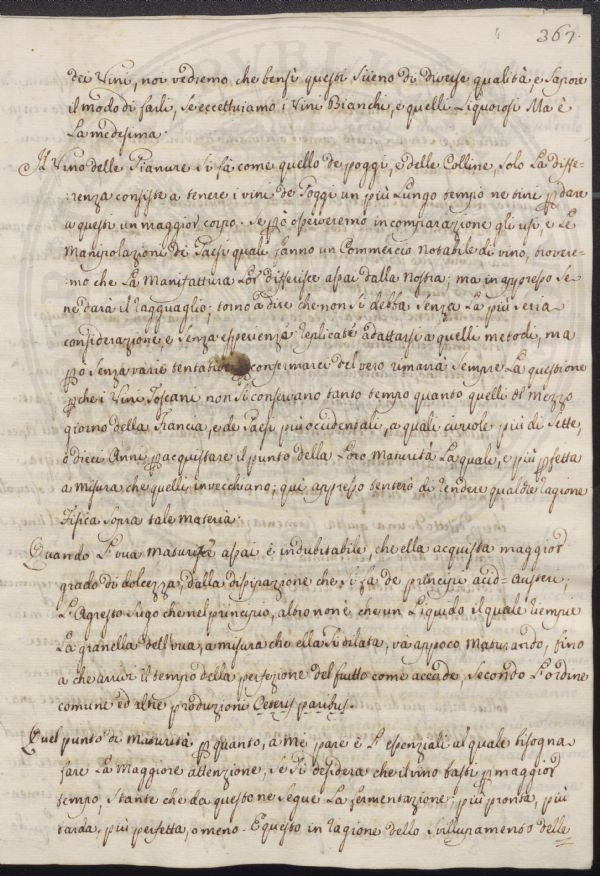 367.
dei Vini, noi vedremo che bensì questi siieno di diverse qualità, e Sapore
il modo di farli, se eccettuiamo i Vini Bianchi, e quelli Liquorosi Ma è
La medesima.
Il Vino delle Pianure si fà come quello de poggi, e delle Colline, solo La diffe=
=renza consiste a tenere i vini de Poggi un più Lungo tempo ne tini p dare
a questi un maggior corpo. Se pò osserveremo in comparazione gli usi, e Le
Manipolazioni di Paesi quali fanno un Commercio notabile di vino, trovere=
=mo che La Manifattura Lor differisce assai dalla Nostra; ma in appresso Se
ne darà il Ragguaglio; torno à dire che non si debba Senza La più Seria
considerazione, e Senza esperienze replicate adattarsi a quelli metodi, ma
pò Senza varii tentativi confermarci del vero rimarrà Sempre La questione
pche i Vini Toscani non si conservano tanto tempo quanto quelli del mezzo
giorno della Francia, e de Paesi più occidentali, a quali ci vuole più di Sette,
ò dieci Anni p acquistare il punto della Loro Maturità La quale, e più pfetta
a misura che quelli invecchiano; qui appresso tenterò di rendere qualche ragione
Fisica Sopra tale materia.
Quando L'uva matura assai è indubitabile, che ella acquista maggior
grado di dolcezza, dalla dissipazione che si fà de principi acid-austeri;
L'Agresto Sugo che nel principio, altro non è, che un Liquido il quale riempie
La granella dell'uva, a misura che ella si dilata, và appoco Maturando, fino
a che arrivi il tempo della perfezione del frutto come accade, Secondo L'ordine
comune ed altre produzioni Ceteris paribus.
Quel punto di Maturità p quanto, a me pare è L'essenziali al quale bisogna
fare La Maggiore attenzione, se si desidera che il vino basti p maggior
tempo, Stante che da questo ne segue La fermentazione; più pronta, più
tarda, più perfetta, o meno. E questo in ragione dello Sviluppamento delle